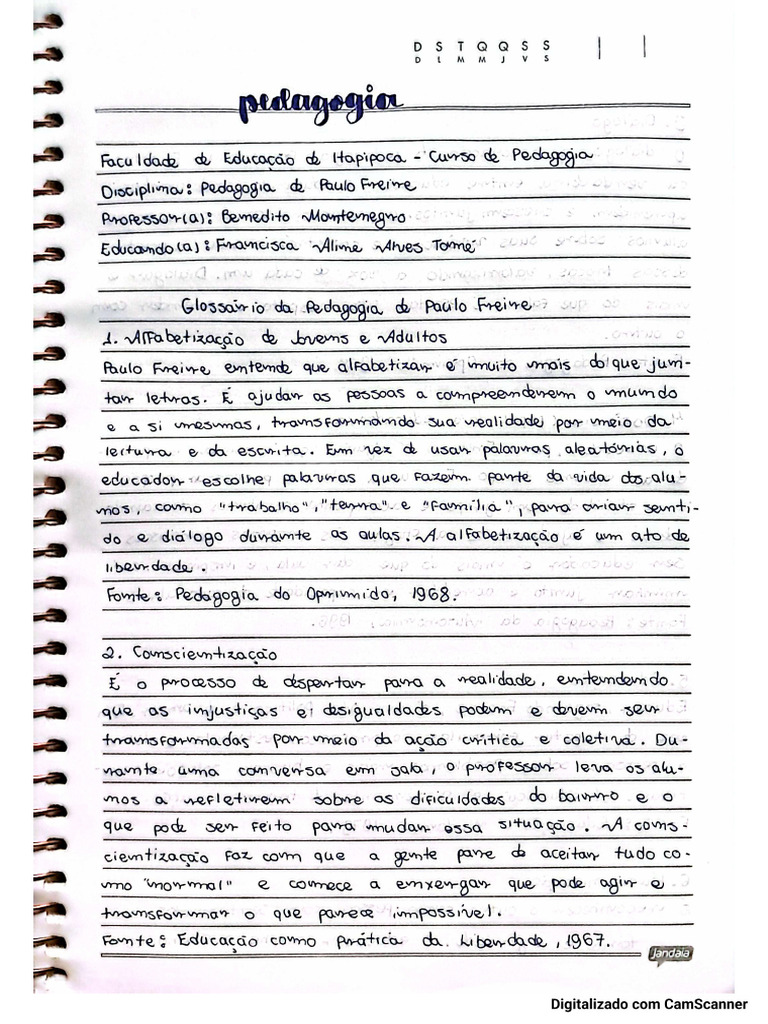 D S T Q Q S S
D L M M J V S
pedagogia
Faculdade de Educação de Itapipoca - Curso de Pedagogia
Disciplina: Pedagogia de Paulo Freire
Professor(a): Benedito Montenegro
Educando(a): Francisca Aline Alves Tomé
Glossário da Pedagogia de Paulo Freire
1. Alfabetização de Jovens e Adultos
Paulo Freire entende que alfabetizar é muito mais do que jun-
tar letras. É ajudar as pessoas a compreenderem o mundo
e a si mesmas, transformando sua realidade por meio da
leitura e da escrita. Em vez de usar palavras aleatórias, o
educador escolhe palavras que fazem parte da vida dos alu-
nos, como "trabalho", "terra" e "família", para criar senti-
do e diálogo durante as aulas. A alfabetização é um ato de
liberdade.
Fonte: Pedagogia do Oprimido, 1968.
2. Conscientização
É o processo de despertar para a realidade, entendendo
que as injustiças e desigualdades podem e devem ser
transformadas por meio da ação crítica e coletiva. Du-
rante uma conversa em sala, o professor leva os alu-
nos a refletirem sobre as dificuldades do bairro e o
que pode ser feito para mudar essa situação. A cons-
cientização faz com que a gente pare de aceitar tudo co-
mo "normal" e comece a enxergar que pode agir e
transformar o que parece impossível.
Fonte: Educação como prática da Liberdade, 1967.
jandaia
Digitalizado com CamScanner